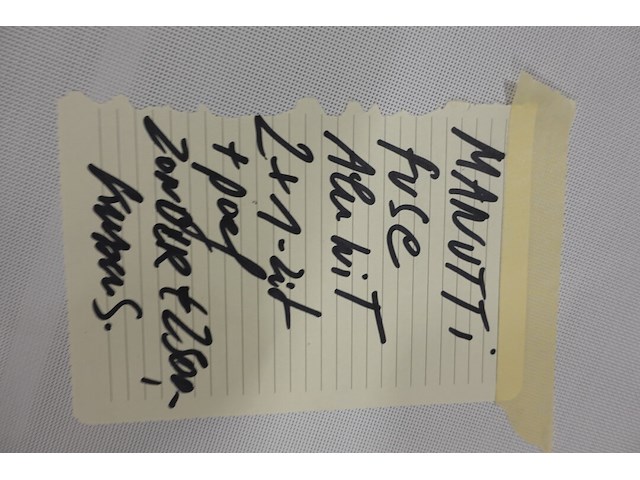 MANUTTI
fuse
Alu wit
2 x 1-zit
+ poef
ZONDER € 2500,-
kussens.